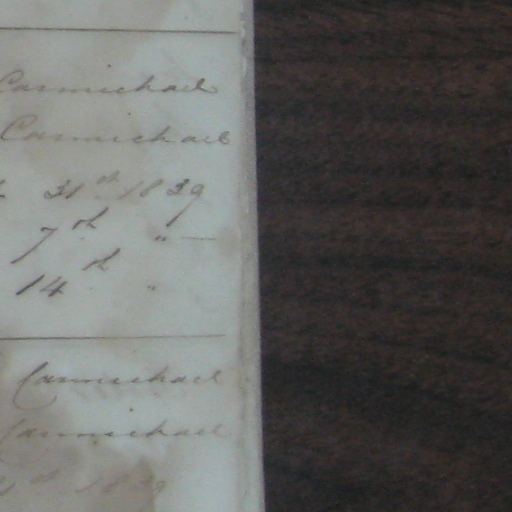 Carmichael
Carmichael
31st 1839
7th " —
14th "
Carmichael
Carmichael